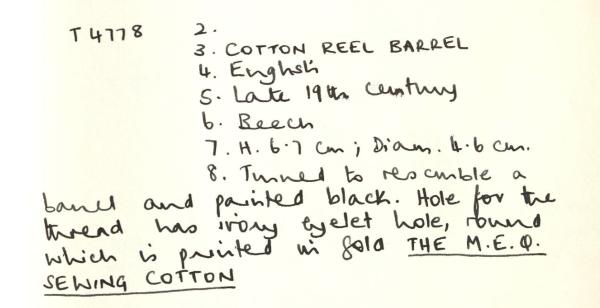 T 4778 2.
3. COTTON REEL BARREL
4. English
5. Late 19th Century
6. Beech
7. H. 6.7 cm ; Diam. 4.6 cm.
8. Turned to resemble a
barrel and painted black. Hole for the
thread has ivory eyelet hole, round
which is printed in gold THE M.E.Q.
SEWING COTTON